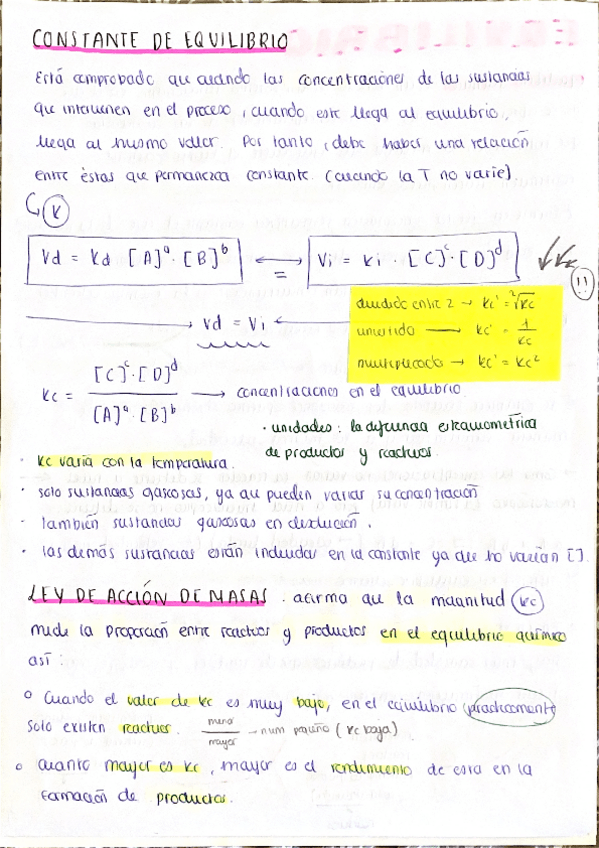 CONSTANTE DE EQUILIBRIO
Está comprobado que cuando las concentraciones de las sustancias
que intervienen en el proceso, cuando este llega al equilibrio,
llega al mismo valor. Por tanto, debe haber una relación
entre éstas que permanezca constante. (cuando la T no varíe)
K
Vd = Kd [A]ᵃ · [B]ᵇ ⟷ = Vi = Ki · [C]ᶜ · [D]ᵈ
11
→ Vd = Vi ←
dividido entre 2 → Kc' = ²√Kc
invertido → Kc' = 1/Kc
multiplicado → Kc' = Kc²
Kc = [C]ᶜ·[D]ᵈ / [A]ᵃ·[B]ᵇ → concentraciones en el equilibrio
· unidades: la diferencia estequiometrica
de productos y reactivos.
· Kc varía con la temperatura.
· solo sustancias gaseosas, ya que pueden variar su concentración
· también sustancias gaseosas en disolución.
· las demás sustancias están incluidas en la constante ya que no varían [].
LEY DE ACCIÓN DE MASAS. afirma que la magnitud Kc
mide la proporción entre reactivos y productos en el equilibrio químico
así:
o Cuando el valor de Kc es muy bajo, en el equilibrio prácticamente
solo existen reactivos. menor/mayor → num pequeño (Kc baja)
o cuanto mayor es Kc, mayor es el rendimiento de esta en la
formación de productos.